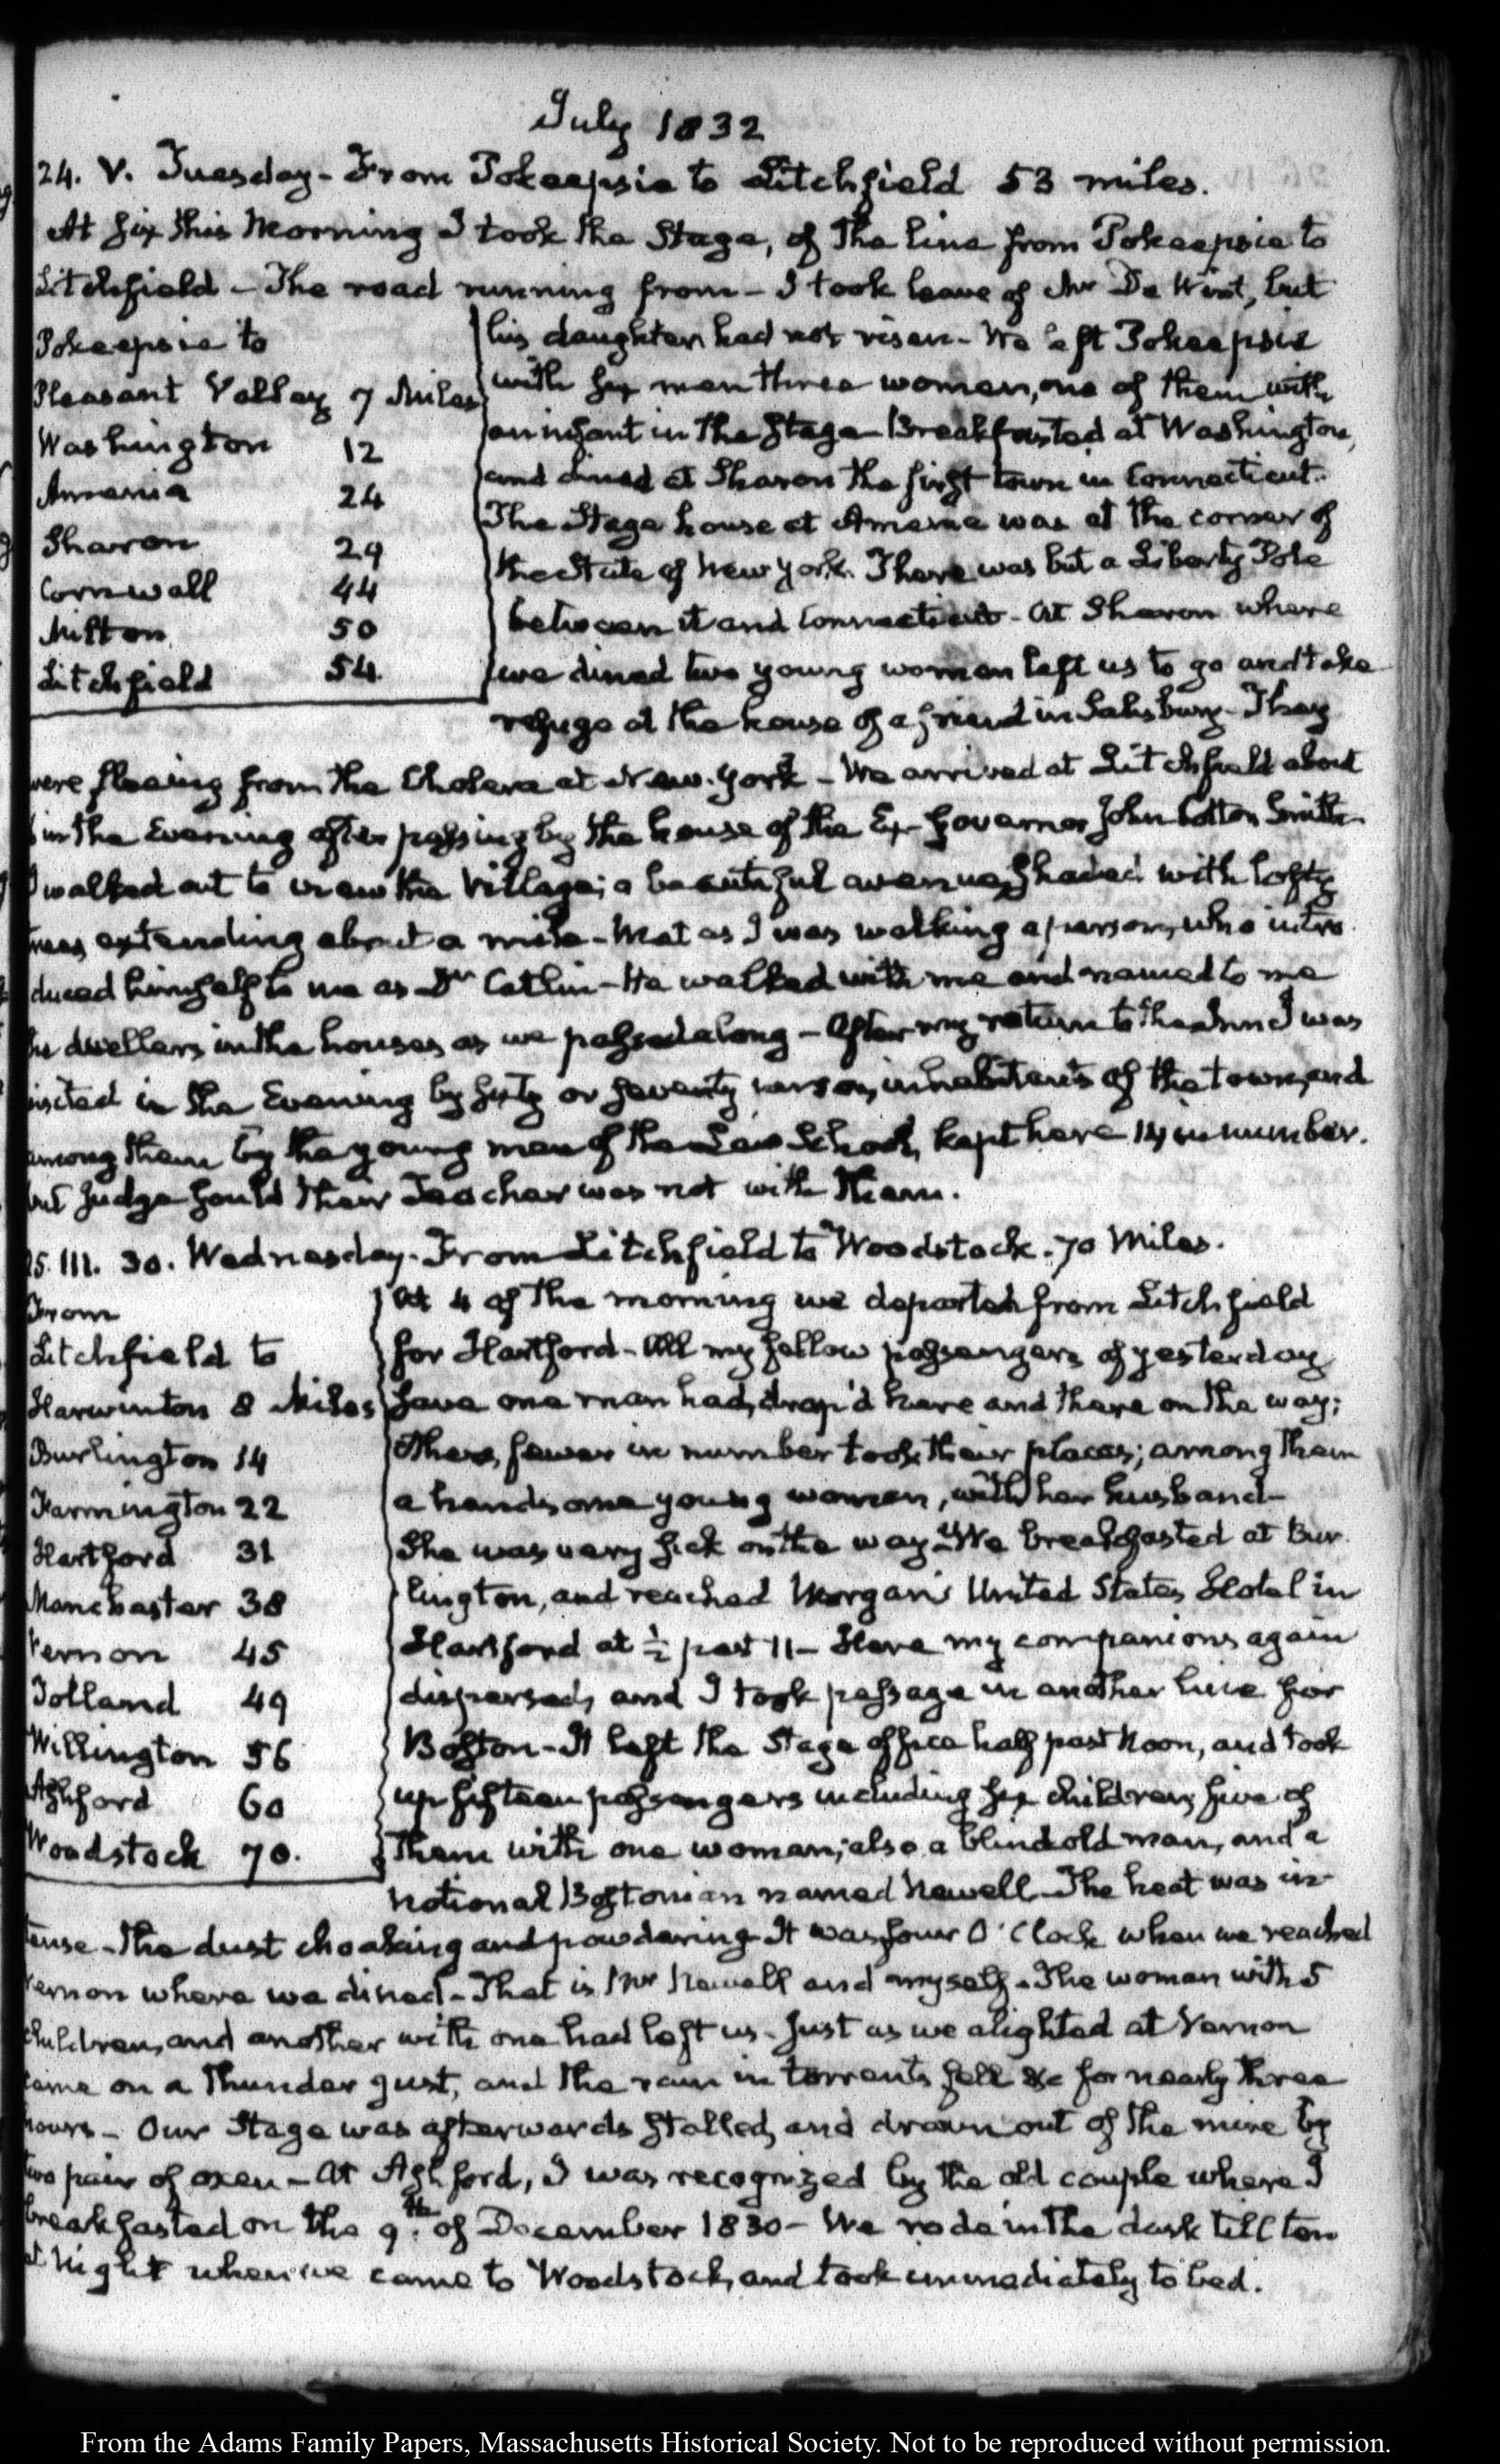 July 1832
24. V. Tuesday - From Pokeepsie to Litchfield 53 miles.
At six this Morning I took the Stage, of the line from Pokeepsie to
Litchfield - The road running from - I took leave of Mr De Wint, but
Pokeepsie to
Pleasant Valley 7 Miles
Washington 12
Amenia 24
Sharon 29
Cornwall 44
Milton 50
Litchfield 54
his daughter had not risen - We left Pokeepsie
with six men three women, one of them with
an infant in the Stage - Breakfasted at Washington,
and dined at Sharon the first town in Connecticut.
The Stage house at Amenia was at the corner of
the State of New York. There was but a Liberty Pole
between it and Connecticut - At Sharon where
we dined two young women left us to go and take
refuge at the house of a friend in Salisbury - They
were fleeing from the Cholera at New-York - We arrived at Litchfield about
in the Evening after passing by the house of the Ex-Governor John Cotton Smith
I walked out to view the Village; a beautiful avenue, shaded with lofty
trees extending about a mile - Met as I was walking a person, who intro
duced himself to me as Dr Catlin - He walked with me and named to me
the dwellers in the houses as we passed along - After my return to the Inn I was
visited in the Evening by sixty or seventy inhabitants of the town, and
among them by the young men of the Law School, kept here 14 in number.
but Judge Gould their Teacher was not with them.
25. III. 30. Wednesday - From Litchfield to Woodstock. 70 Miles.
From
Litchfield to
Harwinton 8 Miles
Burlington 14
Farmington 22
Hartford 31
Manchester 38
Vernon 45
Tolland 49
Willington 56
Ashford 60
Woodstock 70.
At 4 of the morning we departed from Litchfield
for Hartford - All my fellow passengers of yesterday
save one man had, drop'd here and there on the way;
others, fewer in number took their places; among them
a handsome young woman, with her husband -
She was very sick on the way - We breakfasted at Bur
lington, and reached Morgan's United States Hotel in
Hartford at ½ past 11 - Here my companions again
dispersed, and I took passage in another line for
Boston - It left the Stage office half past Noon, and took
up fifteen passengers including six children, five of
them with one woman; also a blind old man, and a
notional Bostonian named Newell - The heat was in-
tense - the dust choaking and powdering - It was four O'Clock when we reached
Vernon where we dined - That is Mr Newell and myself - The woman with 5
children, and another with one had left us - Just as we alighted at Vernon
came on a Thunder gust, and the rain in torrents fell for nearly three
hours - Our Stage was afterwards stalled, and drawn out of the mire by
two pair of oxen - At Ashford, I was recognized by the old couple where I
breakfasted on the 9th of December 1830 - We rode in the dark till ten
at Night when we came to Woodstock, and took immediately to bed.
From the Adams Family Papers, Massachusetts Historical Society. Not to be reproduced without permission.